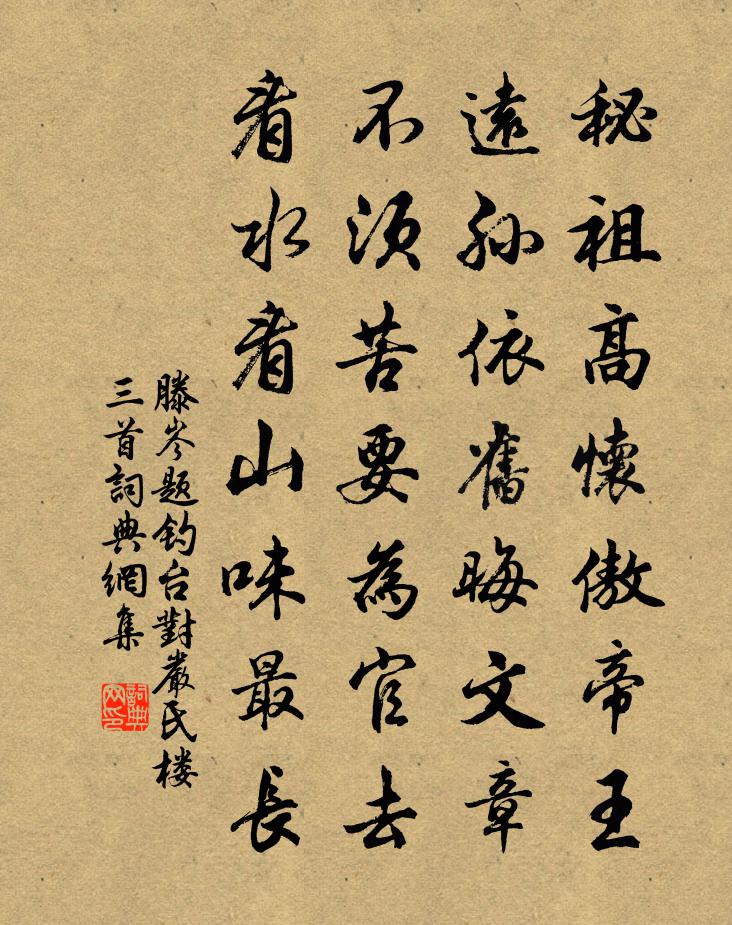 秘祖高懷傲帝王
遠孫依舊晦文章
不須苦要為官去
看水看山味最長
滕岑题钓台對嚴氏楼
三首詞典網集
詞典网印